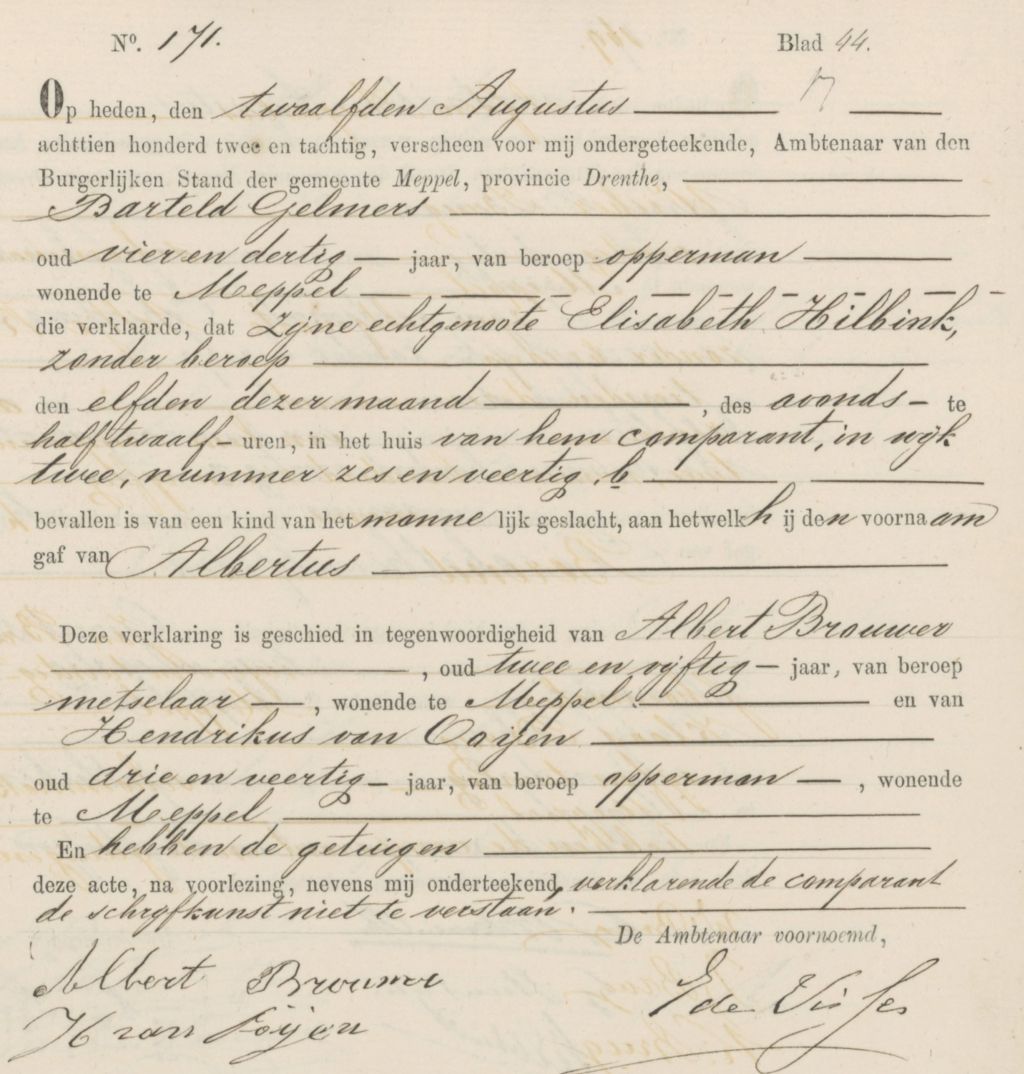 Nº. 171. Blad 44.
Op heden, den twaalfden Augustus
achttien honderd twee en tachtig, verscheen voor mij ondergeteekende, Ambtenaar van den
Burgerlijken Stand der gemeente Meppel, provincie Drenthe,
Barteld Gelmers
oud vier en dertig jaar, van beroep opperman
wonende te Meppel
die verklaarde, dat zijne echtgenoote Elisabeth Hilbink,
zonder beroep
den elfden dezer maand, des avonds te
half twaalf uren, in het huis van hem comparant, in wijk
twee, nummer zes en veertig, b
bevallen is van een kind van het mannelijk geslacht, aan hetwelk hij den voornaam
gaf van Albertus
Deze verklaring is geschied in tegenwoordigheid van Albert Brouwer
, oud twee en vijftig jaar, van beroep
metselaar, wonende te Meppel en van
Hendrikus van Ooijen
oud drie en veertig jaar, van beroep opperman, wonende
te Meppel
En hebben de getuigen
deze acte, na voorlezing, nevens mij onderteekend, verklarende de comparant
de schrijfkunst niet te verstaan.
De Ambtenaar voornoemd,
Albert Brouwer
H van Ooijen